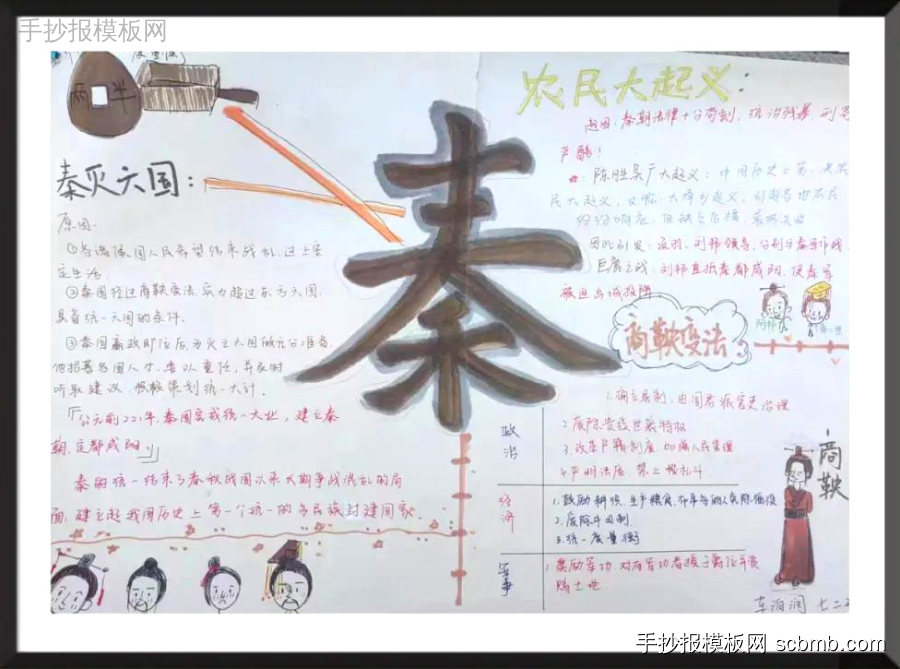 手抄报模板网
两半
秦灭六国：
原因：
①各诸侯国人民希望结束战乱,过上安
定生活.
②秦国经过商鞅变法,实力超过东方六国.
具备统一六国的条件.
③秦国嬴政即位后,为灭亡六国做充分准备.
他招募各国人才,委以重任,并及时
听取建议,积极策划统一大计.
「公元前221年,秦国完成统一大业,建立秦
朝,定都咸阳」
秦的统一结束了春秋战国以来长期争战混乱的局
面,建立起我国历史上第一个统一的多民族封建国家.
秦
农民大起义：
起因：秦朝法律十分苛刻,统治残暴,刑
严酷！
陈胜吴广大起义：中国历史上第一次农
民大起义,又称：大泽乡起义,
因此引发：项羽、刘邦领导,
巨鹿之战,刘邦直抵秦都咸阳,使秦
被迫出城投降
商鞅变法
政治
1.确立县制,由国君派官吏治理
2.废除贵族世袭特权
3.改革户籍制度,加强人民管理
4.严明法度,禁止私斗
经济
1.鼓励耕织,生产粮食、布帛多的人免除徭役
2.废除井田制
3.统一度量衡
军事
1.奖励军功,对有军功者授予爵位并赏
赐土地.
商鞅
七二
手抄报模板网 scbmb.com